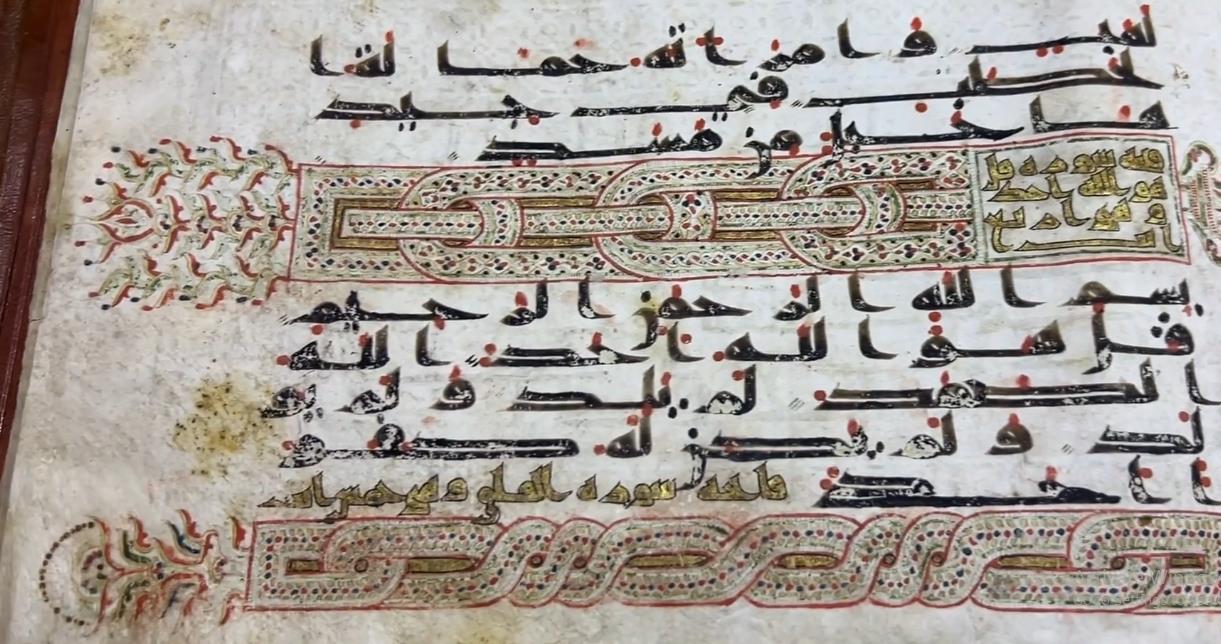 لهب وامراته حمالة ا
لحطب في جيد
ها حبل من مسد
سورة قل
هو الله احد
وهي اربع
بسم الله الرحمن الرحيم
قل هو الله احد الله
الصمد لم يلد ولم يو
لد ولم يكن له كفو
ا احد فاتحة سورة الفلق وهي خمس ايات